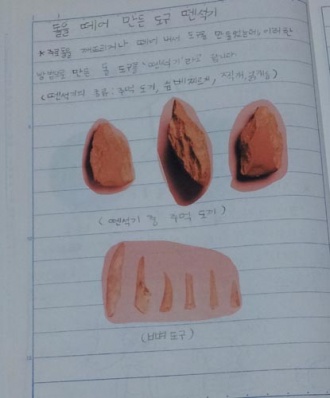 돌을 떼어 만든 도구 뗀석기
떼어 내서 도구를 만들었는데, 이러한
방법으로 만든 돌 도구를 뗀석기 라고 합니다.
(뗀석기의 종류: 주먹 도끼, 슴베찌르개, 찍개, 긁개 등)
(뗀석기 중 주먹 도끼)
(도구)